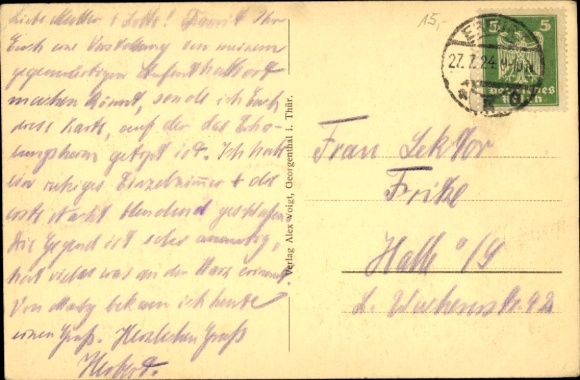 Liebe Mutter, & Lotte! Damit Ihr
Euch eine Vorstellung von meinem
gegenwärtigen Aufenthaltsort
machen könnt, sende ich Euch
diese Karte, auf der das Erho-
lungsheim getypt ist. Ich habe
ein ruhiges Einzelzimmer + die
erste Nacht blendend geschlafen.
Die Gegend ist sehr anmutig,
hat vieles was an den Harz erinnert.
Von bekam ich heute
einen Gruß. Herzlichen Gruß
Herbert.
Verlag Alex Voigt, Georgenthal i. Thür.
15,-
27.7.24
5 5
Deutsches
Reich
Frau Lektor
Fritze
Halle a/S
L. Wuchererstr. 42